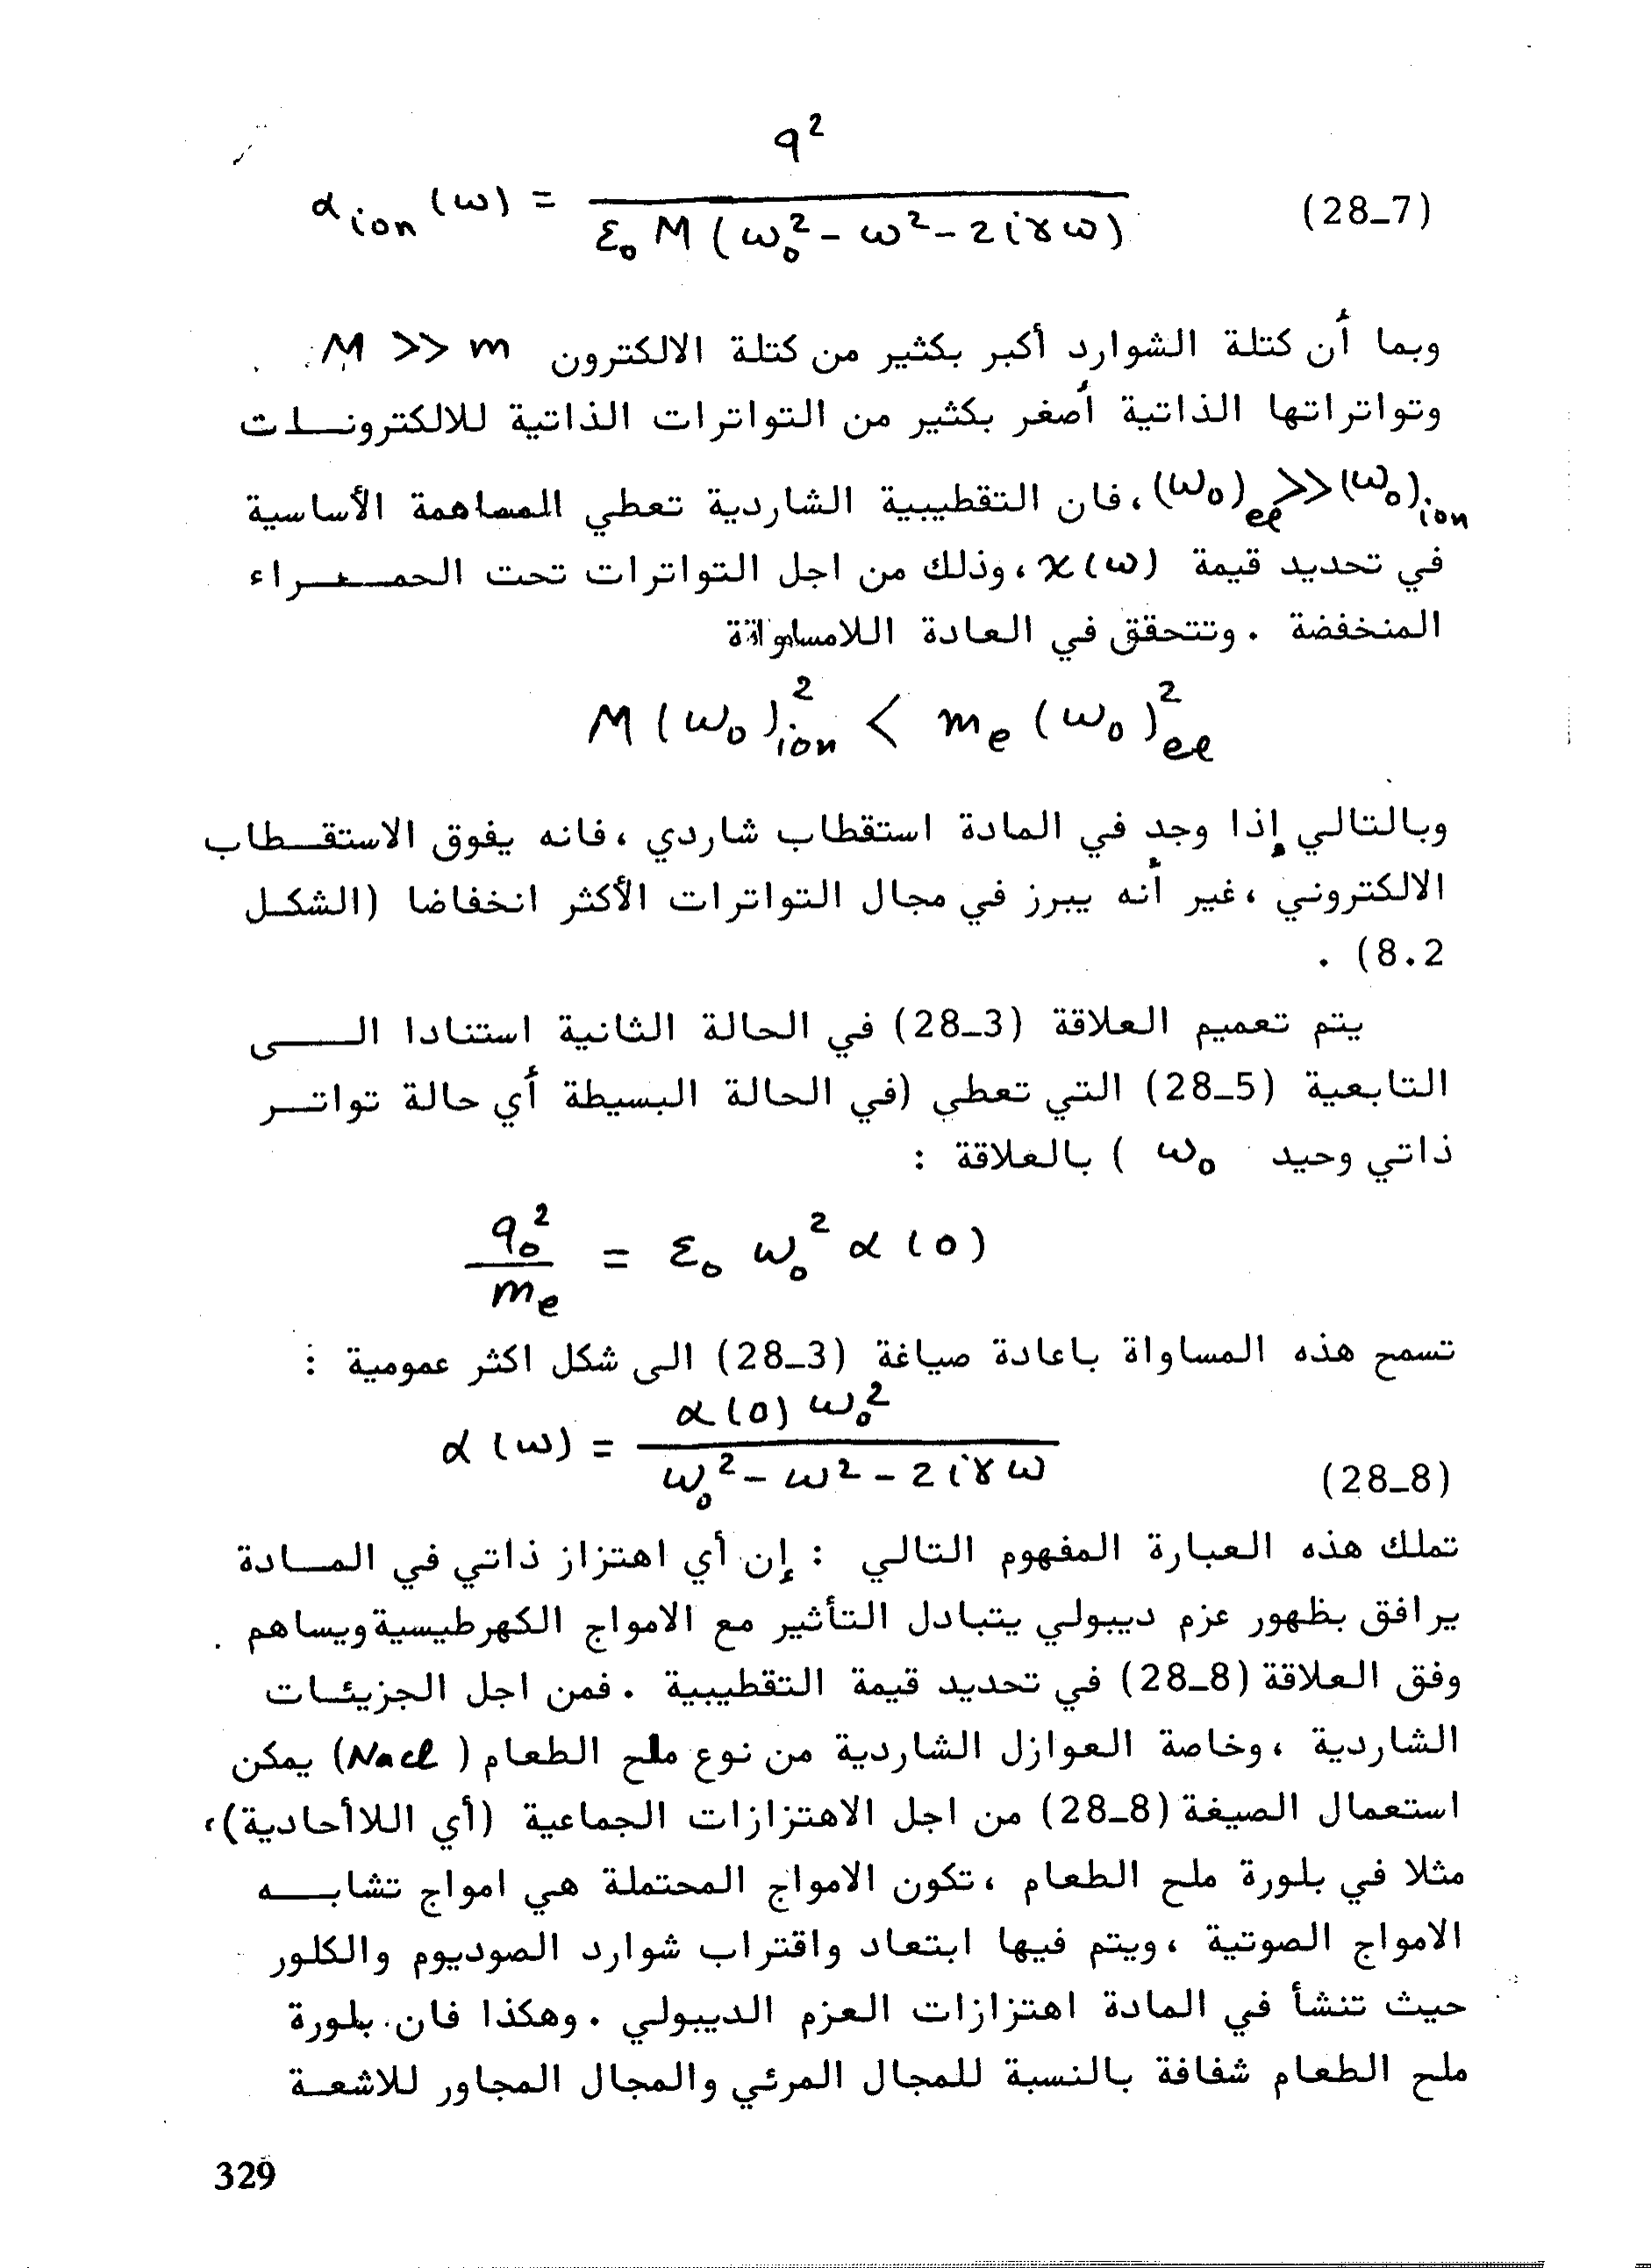 α_ion (ω) = q² / ε₀ M (ω₀² - ω² - 2iγω) (28-7)
وبما أن كتلة الشوارد أكبر بكثير من كتلة الالكترون M >> m
وتواتراتها الذاتية أصغر بكثير من التواترات الذاتية للالكترونات
(ω₀)_ion << (ω₀)_el ، فان التقطيبية الشاردية تعطي المساهمة الأساسية
في تحديد قيمة χ(ω) ، وذلك من اجل التواترات تحت الحمراء
المنخفضة . وتتحقق في العادة اللامساواة
M (ω₀)²_ion < m_e (ω₀)²_el
وبالتالي إذا وجد في المادة استقطاب شاردي ، فانه يفوق الاستقطاب
الالكتروني ، غير أنه يبرز في مجال التواترات الأكثر انخفاضا (الشكل
8.2) .
يتم تعميم العلاقة (28-3) في الحالة الثانية استنادا الى
التابعية (28-5) التي تعطي (في الحالة البسيطة أي حالة تواتر
ذاتي وحيد ω₀ ) بالعلاقة :
q₀² / m_e = ε₀ ω₀² α (0)
تسمح هذه المساواة باعادة صياغة (28-3) الى شكل اكثر عمومية :
α (ω) = α (0) ω₀² / ω₀² - ω² - 2iγω (28-8)
تملك هذه العبارة المفهوم التالي : إن أي اهتزاز ذاتي في المادة
يرافق بظهور عزم ديبولي يتبادل التأثير مع الامواج الكهرطيسية ويساهم .
وفق العلاقة (28-8) في تحديد قيمة التقطيبية . فمن اجل الجزيئات
الشاردية ، وخاصة العوازل الشاردية من نوع ملح الطعام ( Nacl) يمكن
استعمال الصيغة (28-8) من اجل الاهتزازات الجماعية (أي اللاأحادية)،
مثلا في بلورة ملح الطعام ، تكون الامواج المحتملة هي امواج تشابه
الامواج الصوتية ، ويتم فيها ابتعاد واقتراب شوارد الصوديوم والكلور
حيث تنشأ في المادة اهتزازات العزم الديبولي . وهكذا فان بلورة
ملح الطعام شفافة بالنسبة للمجال المرئي والمجال المجاور للاشعة
329